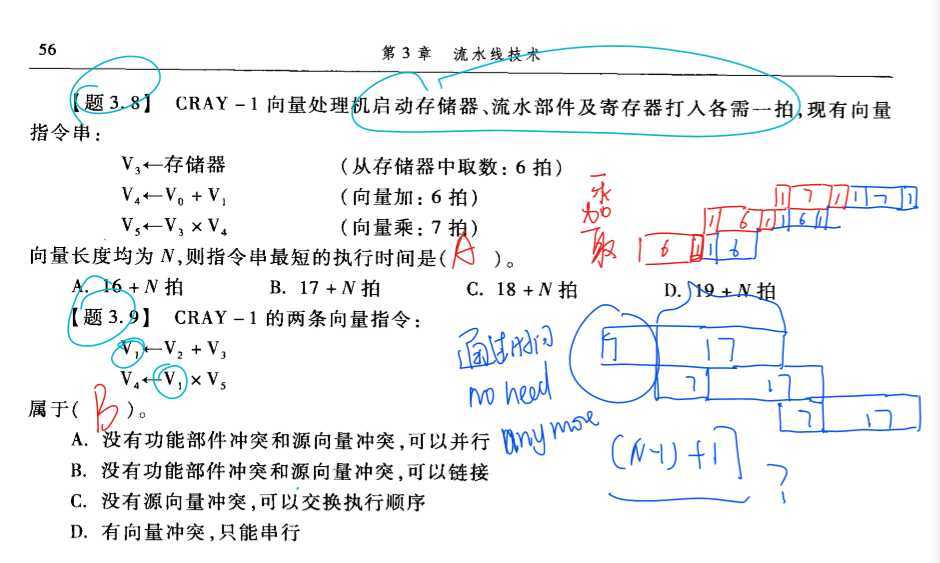 56
第 3 章 流水线技术
【题 3.8】 CRAY－1 向量处理机启动存储器、流水部件及寄存器打入各需一拍,现有向量
指令串:
V₃←存储器 (从存储器中取数: 6 拍)
V₄←V₀ + V₁ (向量加: 6 拍)
V₅←V₃ × V₄ (向量乘: 7 拍)
向量长度均为 N,则指令串最短的执行时间是( A )。
A. 16 + N 拍 B. 17 + N 拍 C. 18 + N 拍 D. 19 + N 拍
【题 3.9】 CRAY－1 的两条向量指令:
V₁←V₂ + V₃
V₄←V₁ × V₅
属于( B )。
A. 没有功能部件冲突和源向量冲突,可以并行
B. 没有功能部件冲突和源向量冲突,可以链接
C. 没有源向量冲突,可以交换执行顺序
D. 有向量冲突,只能串行
乘
加
取
1 7 1 1 7 1
1 6 1 1 6 1
1 6 1 1 6
通过时间
no need
any more
7 17
7 17
7 17
(N-1) + 17
?